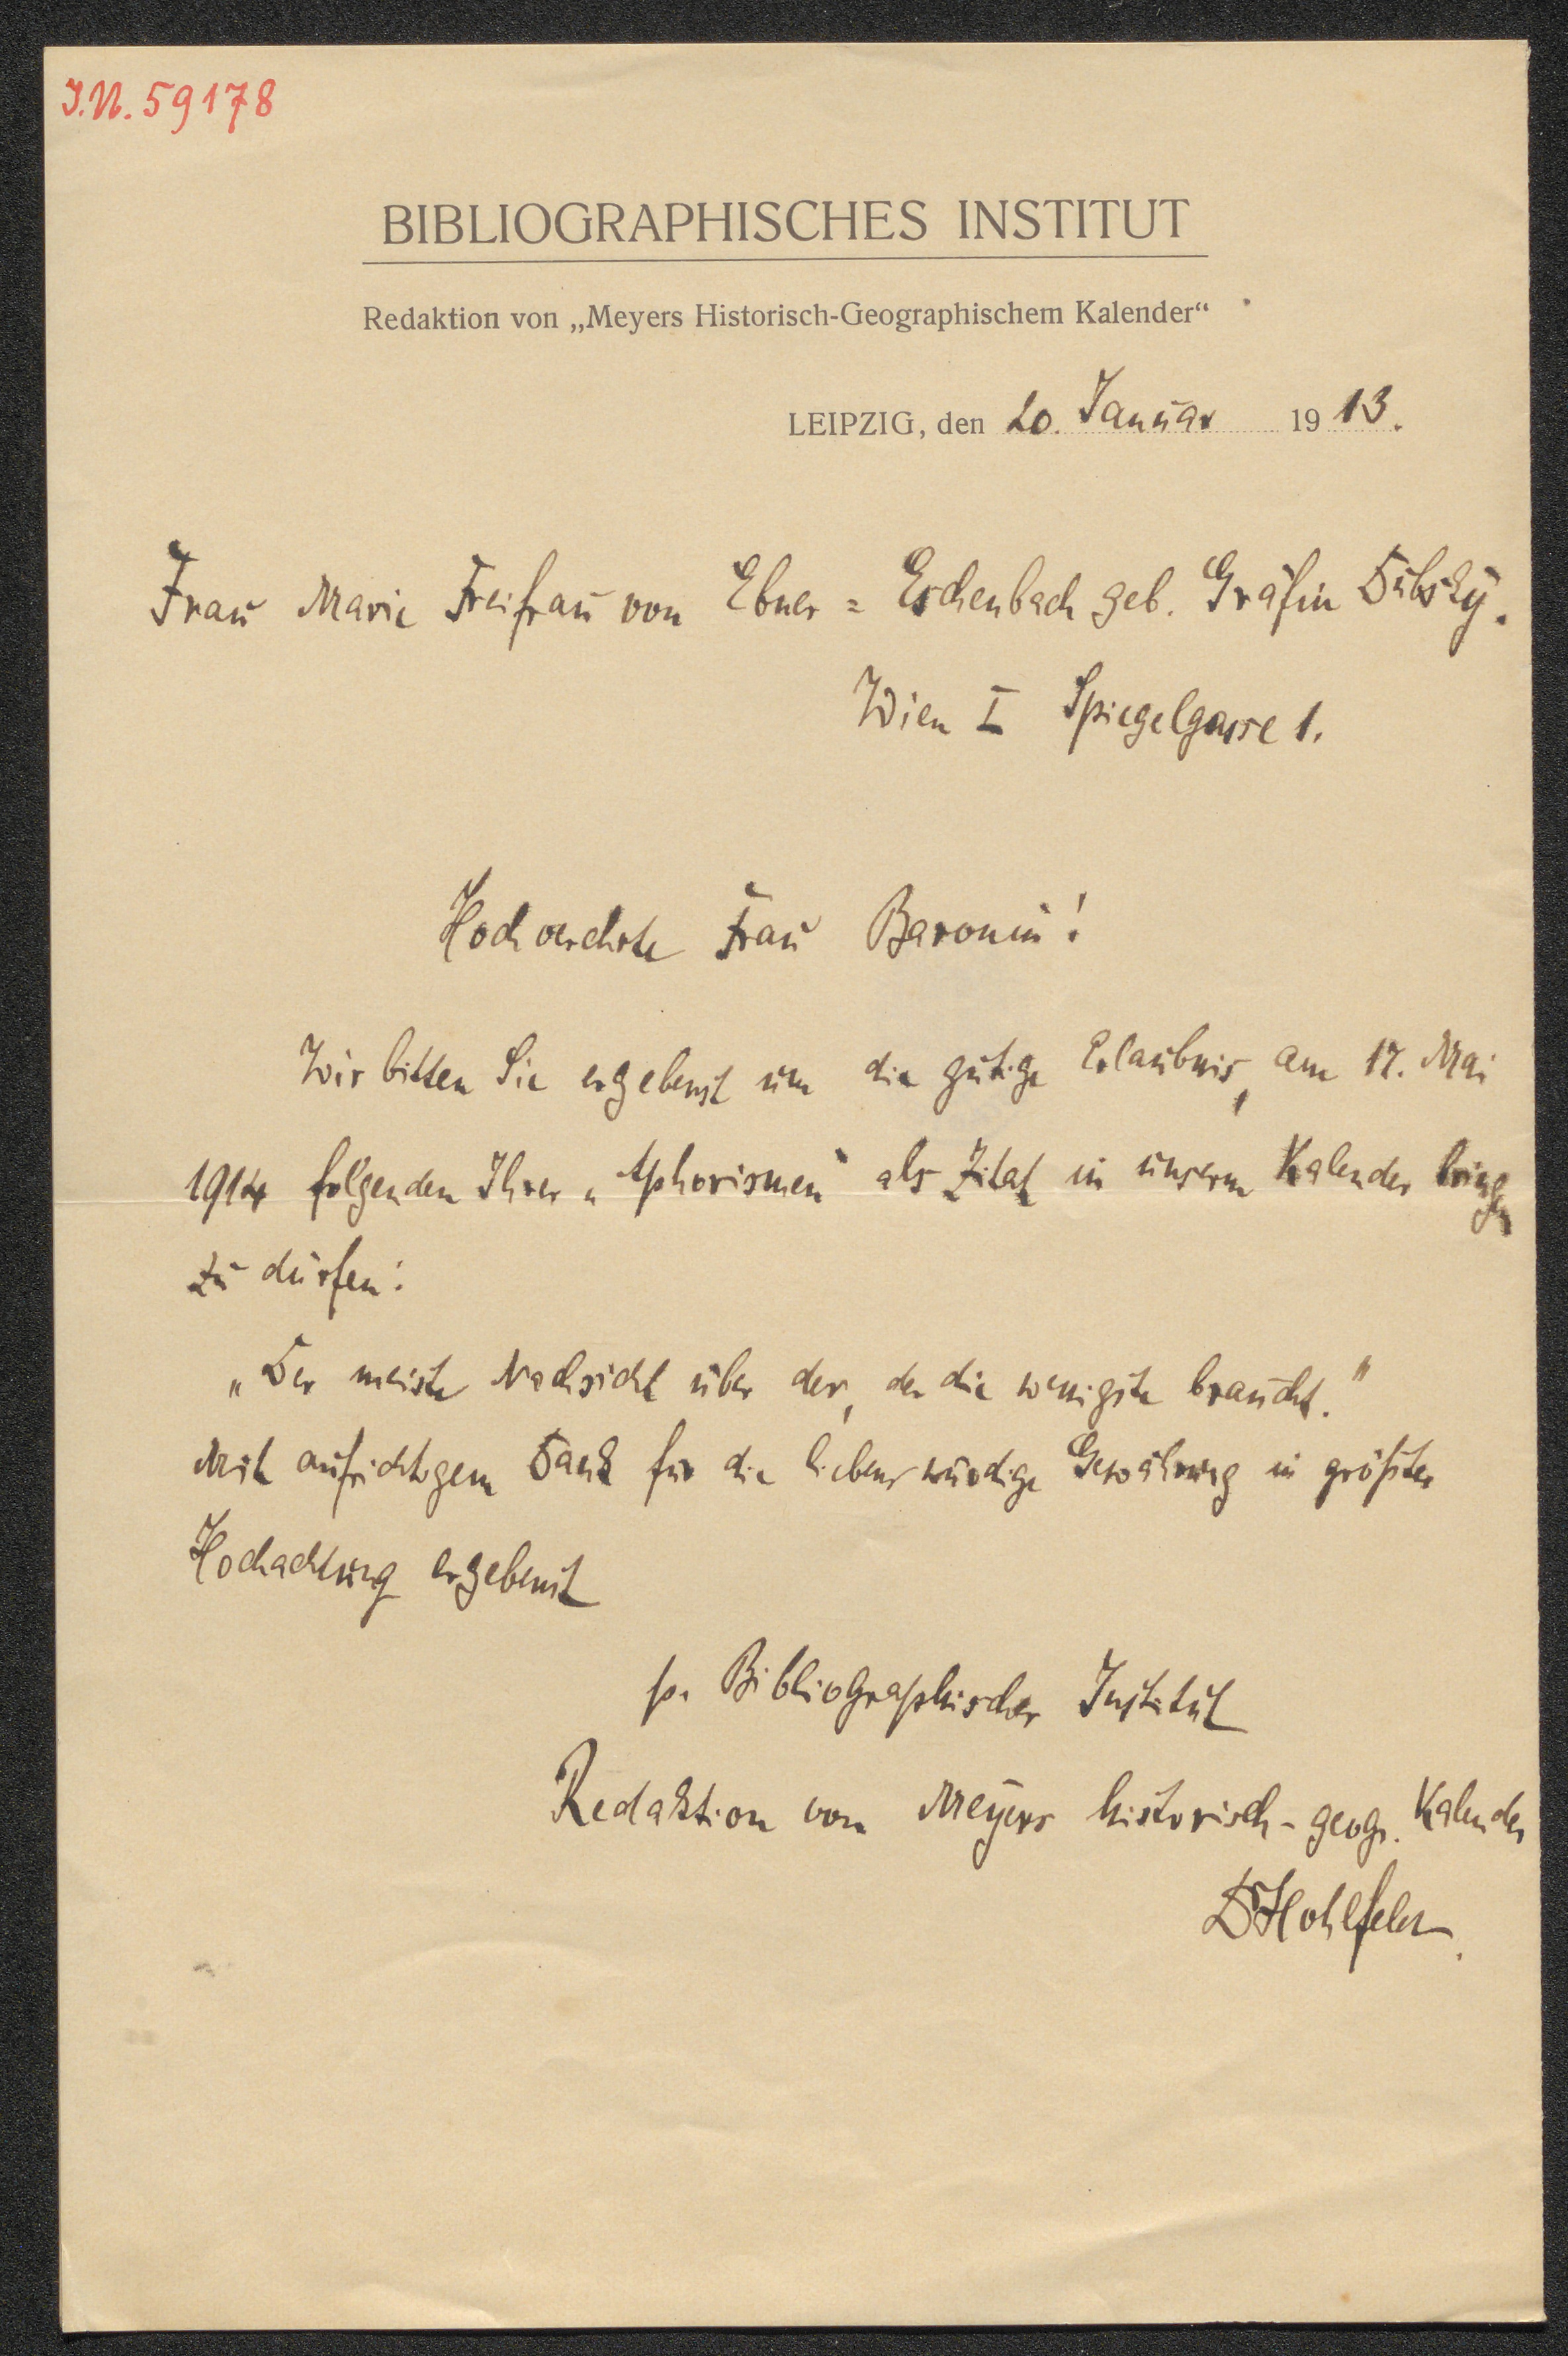 I.N. 59178
BIBLIOGRAPHISCHES INSTITUT
Redaktion von „Meyers Historisch-Geographischem Kalender“
LEIPZIG, den 20. Januar 1913.
Frau Marie Freifrau von Ebner=Eschenbach geb. Gräfin Dubsky.
Wien I Spiegelgasse 1.
Hochverehrte Frau Baronin!
Wir bitten Sie ergebenst um die gütige Erlaubnis, am 17. Mai
1914 folgenden Ihrer „Aphorismen“ als Zitat in unserm Kalender bringen
zu dürfen:
„Der meiste Nachsicht über der, der die wenigste braucht.“
Mit aufrichtigem Dank für die liebenswürdige Gewährung in größter
Hochachtung ergebenst
p. Bibliographisches Institut
Redaktion von Meyers historisch-geogr. Kalender
Dr Hohlfeld.